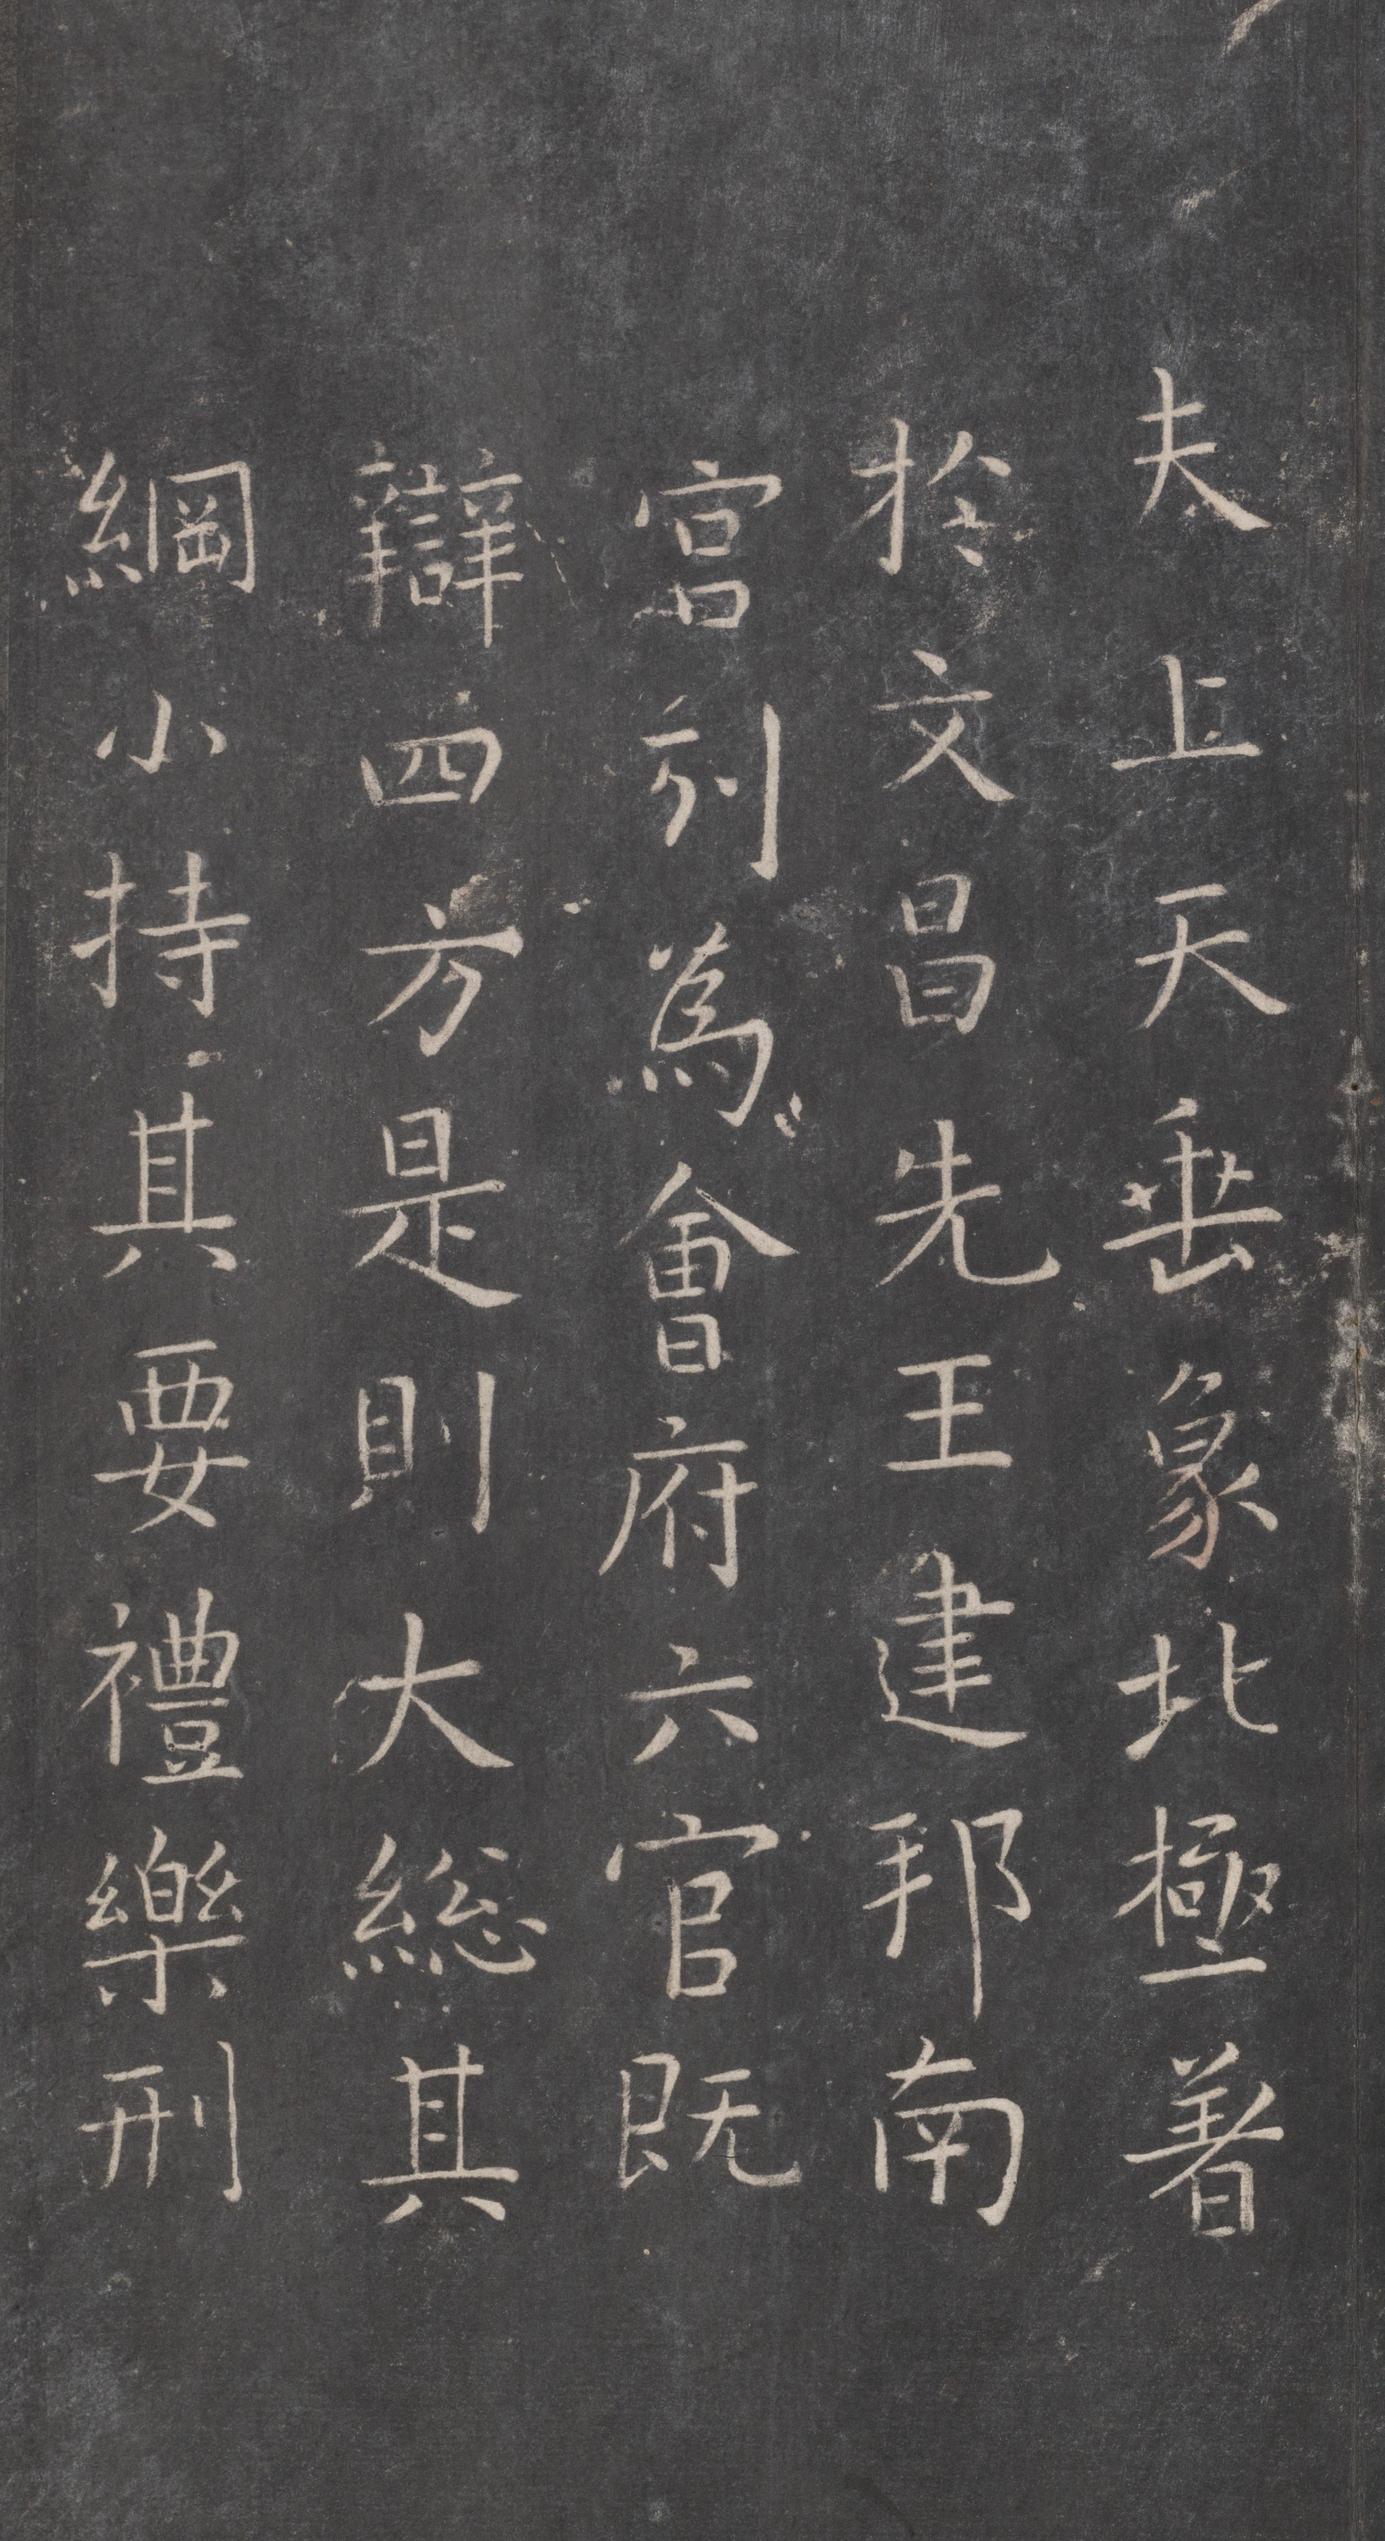 夫上天垂象北極著
於文昌先王建邦南
宮列爲會府六官既
辯四方是則大総其
綱小持其要禮樂刑